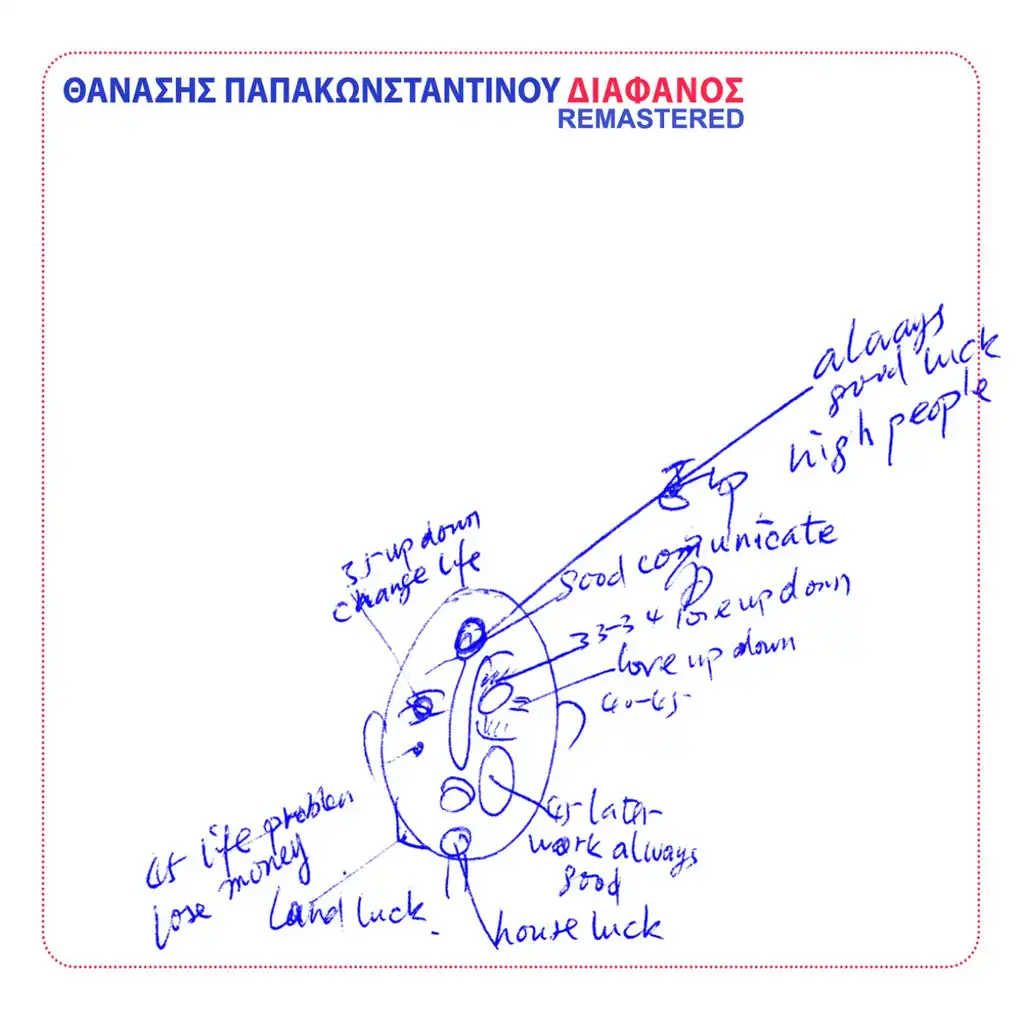 ΘΑΝΑΣΗΣ ΠΑΠΑΚΩΝΣΤΑΝΤΙΝΟΥ ΔΙΑΦΑΝΟΣ
REMASTERED
always
good luck
high people
up
good communicate
35-up down
change life
33-34 lose up down
love up down
40-45
45 life problem
lose money
Land luck.
45-later
work always
good
house luck